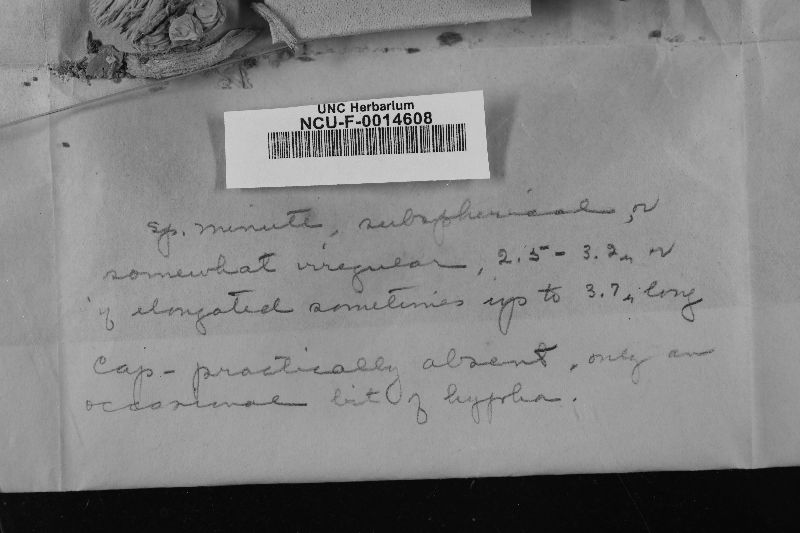 UNC Herbarium
NCU-F-0014608
sp. minute, subspherical, or
somewhat irregular, 2.5 - 3.2µ, or
if elongated sometimes up to 3.7µ long
Cap - practically absent, only an
occasional bit of hypha.